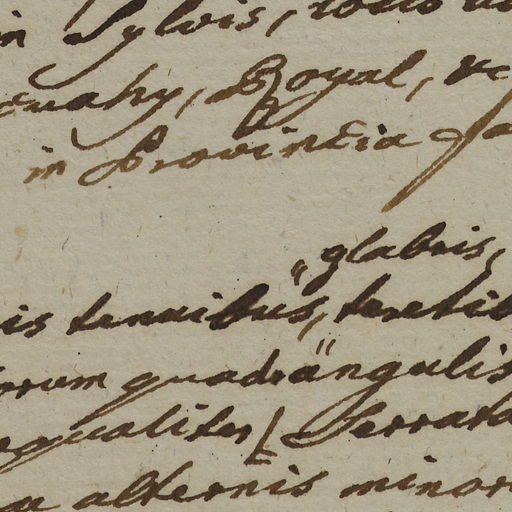 in Sylvis,
Royal,
in Provincia
glabris,
is tenuibus, teretib
orum quadrangulis
equaliter Serrata
a alternis minor